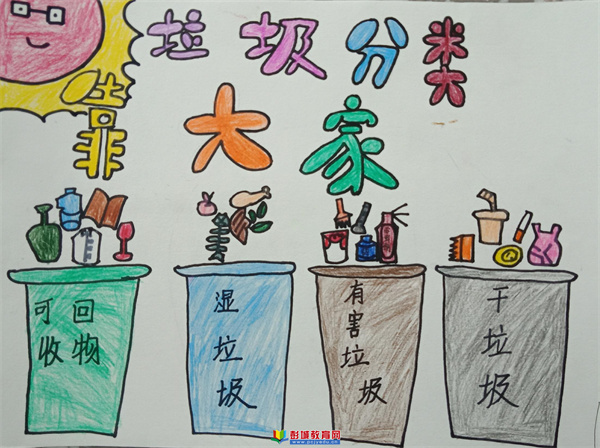 垃圾分类
靠大家
可回
收物
湿垃圾
有害垃圾
干垃圾
彭城教育网